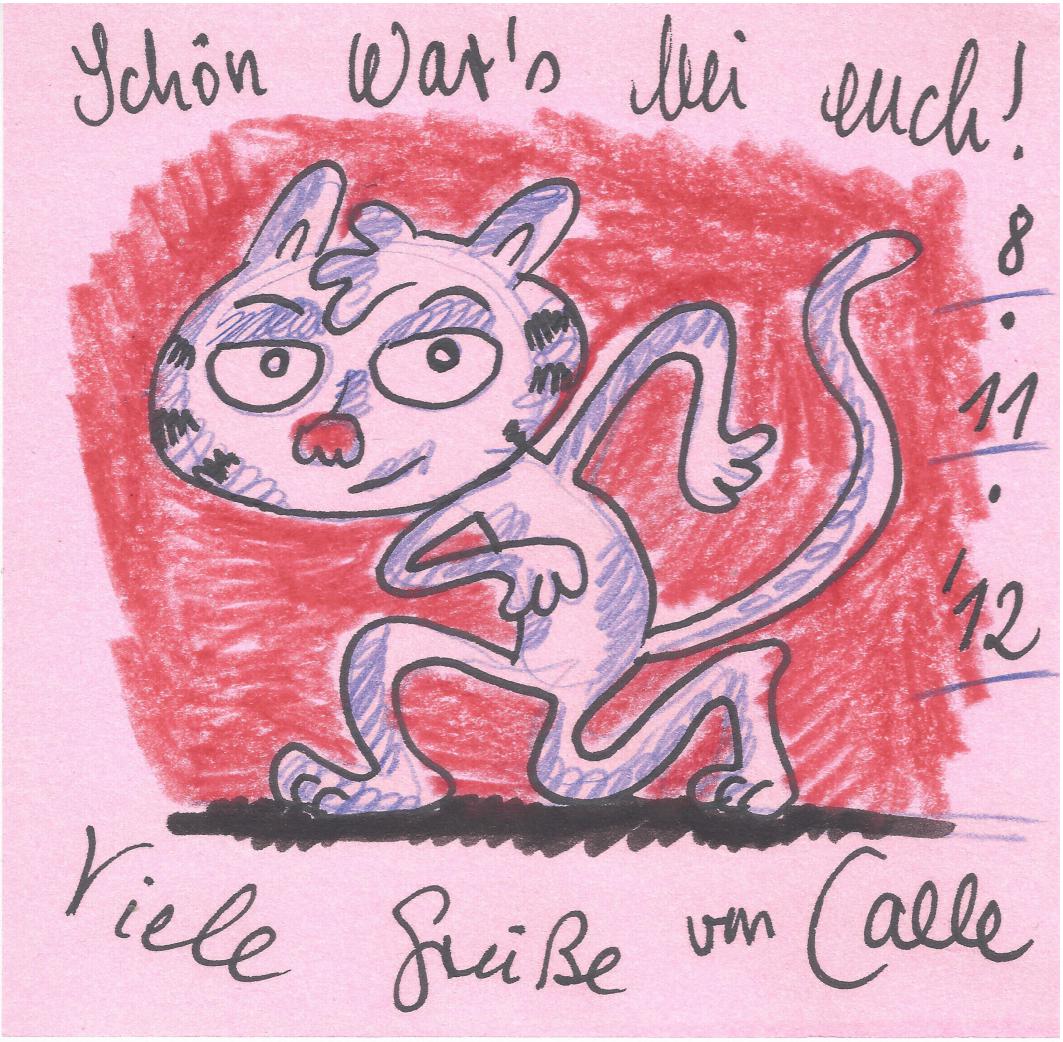 Schön war's bei euch!
8
.
11
.
'12
Viele Grüße von Calle